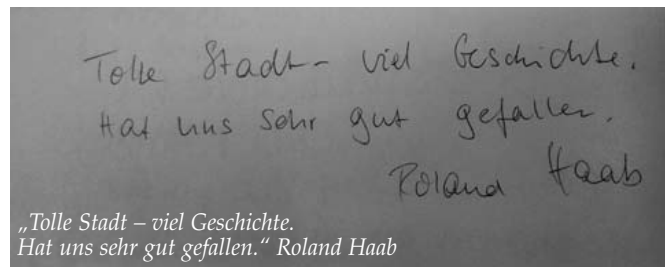 Tolle Stadt – viel Geschichte.
Hat uns sehr gut gefallen.
Roland Haab
„Tolle Stadt – viel Geschichte.
Hat uns sehr gut gefallen.“ Roland Haab